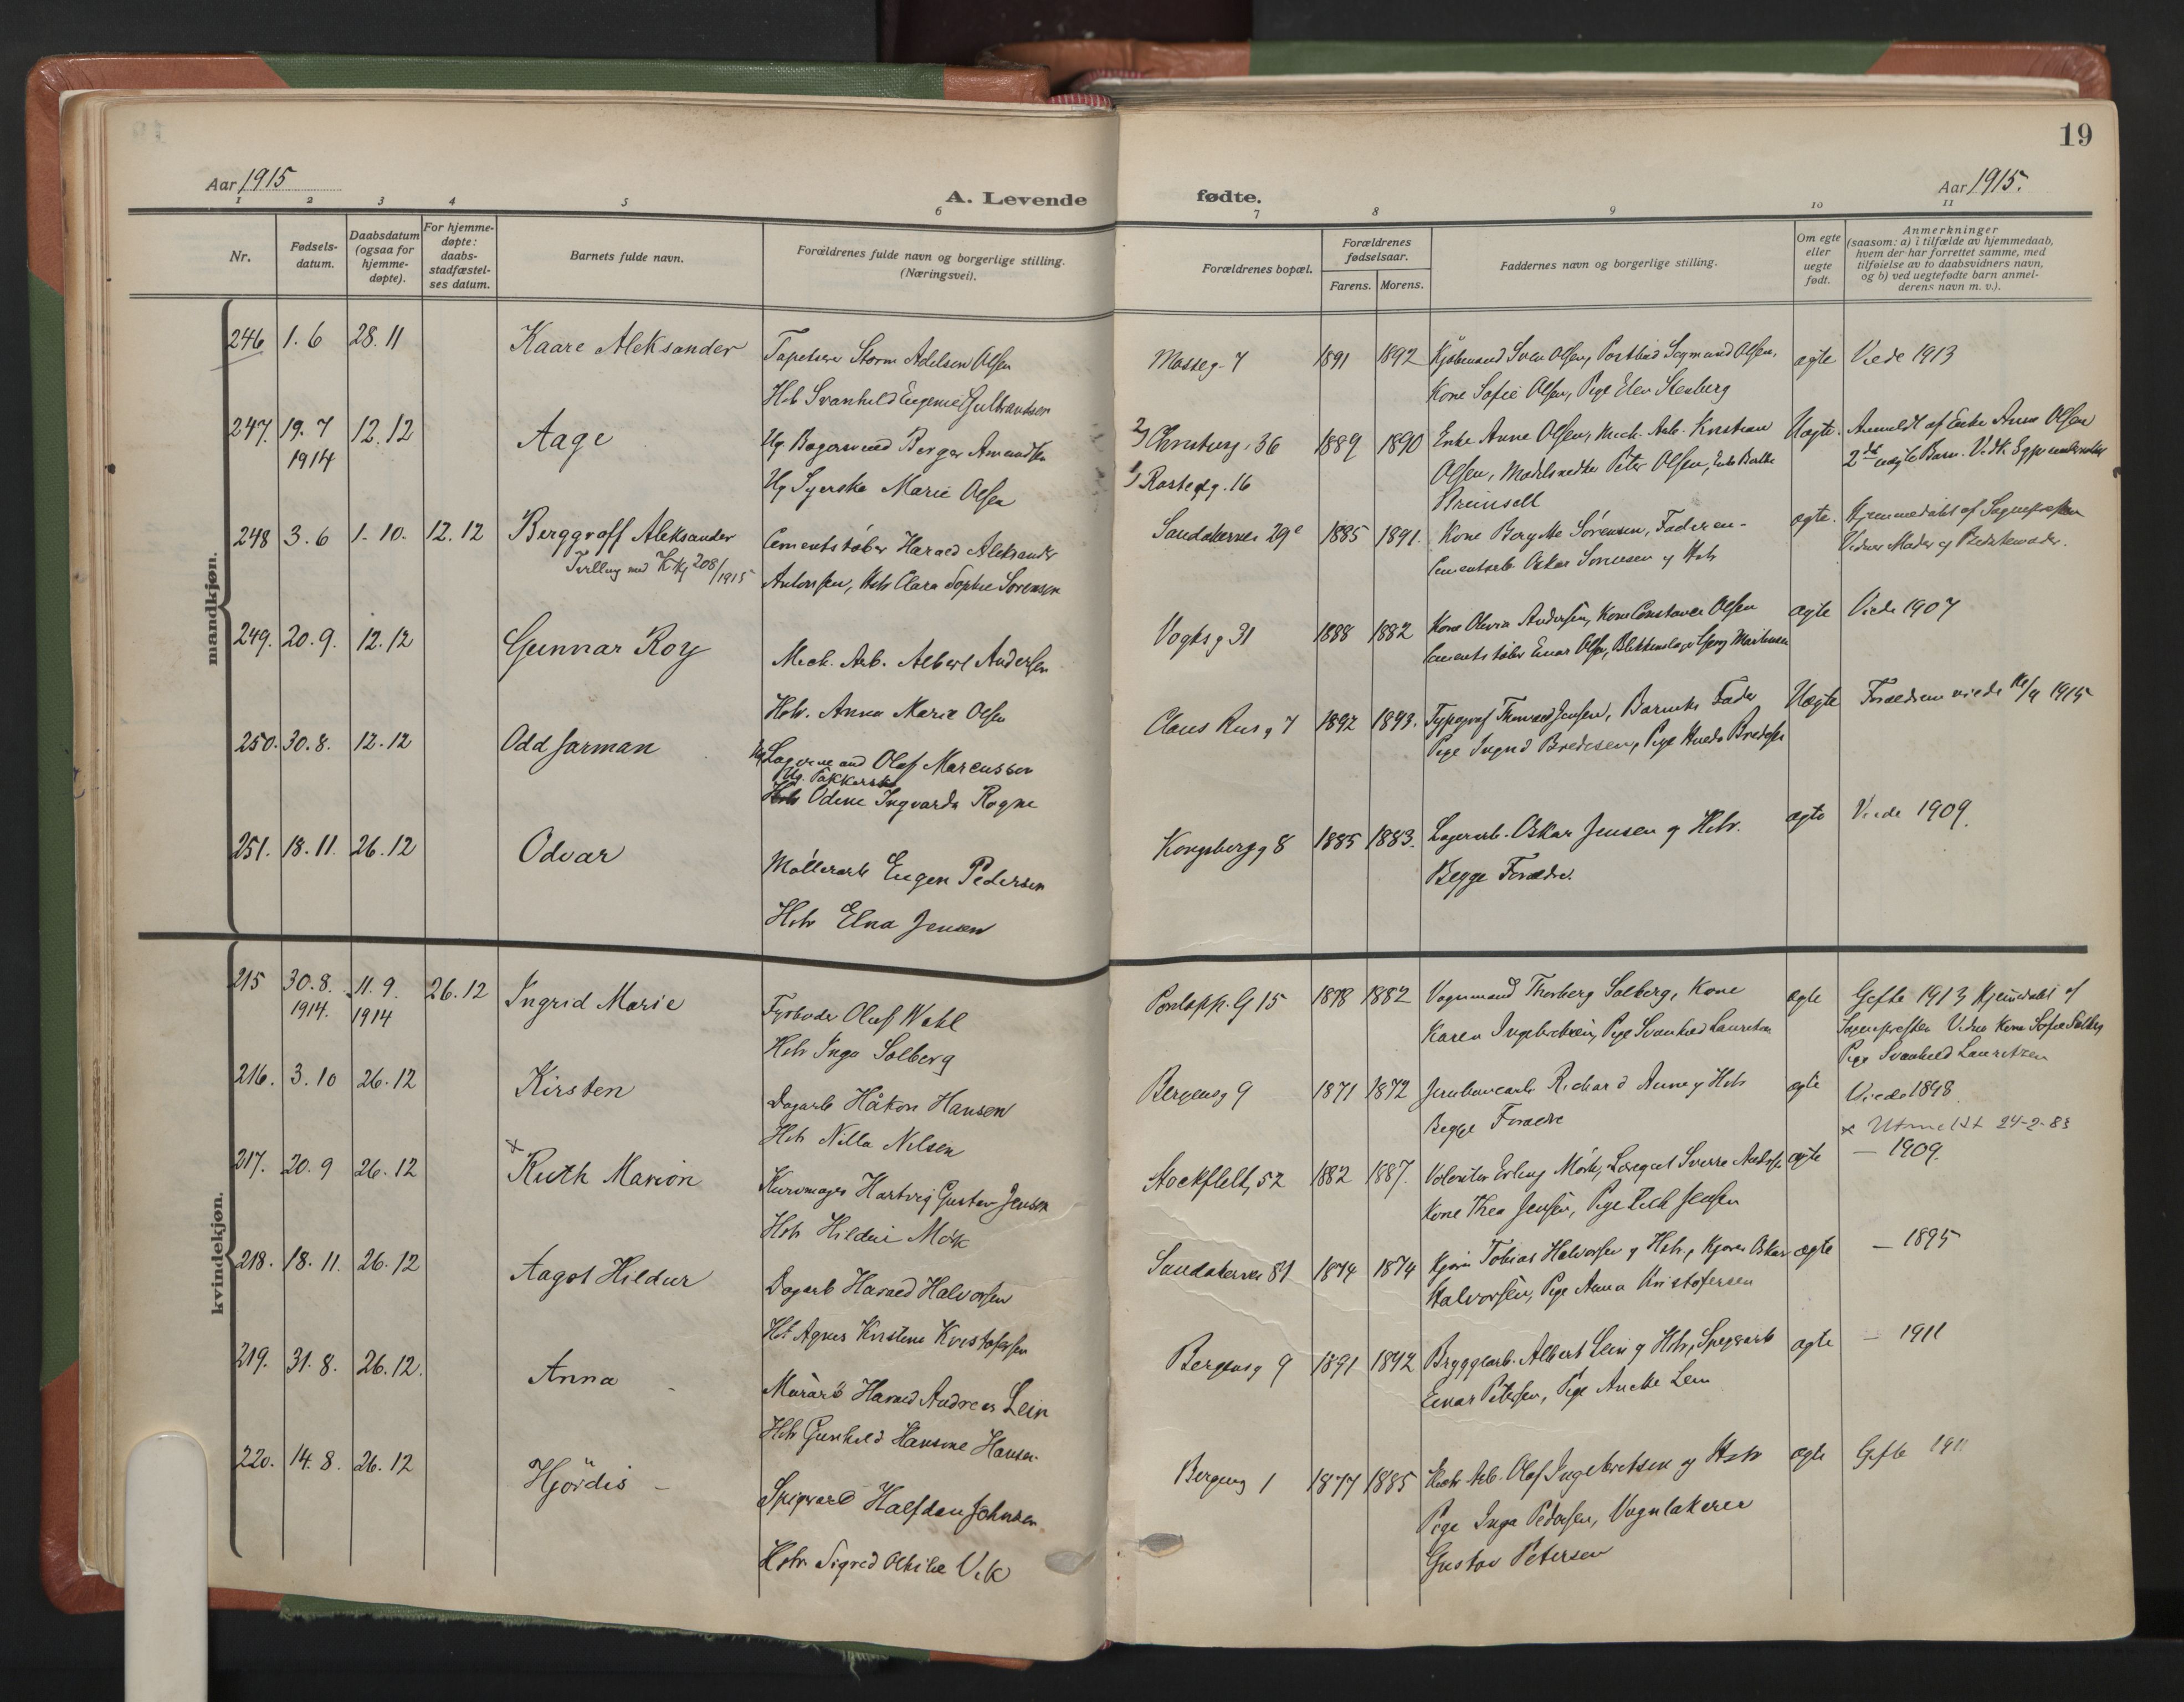 19
Aar 1915
A. Levende fødte.
Aar 1915.
1 2 3 4 5 6 7 8 9 10 11
Nr.
Fødsels-
datum.
Daabsdatum
(ogsaa for
hjemme-
døpte).
For hjemme-
døpte:
daabs-
stadfæstel-
ses datum.
Barnets fulde navn.
Forældrenes fulde navn og borgerlige stilling.
(Næringsvei).
Forældrenes bopæl.
Forældrenes
fødselsaar.
Farens. Morens.
Faddernes navn og borgerlige stilling.
Om egte
eller
uegte
født.
Anmerkninger
(saasom: a) i tilfælde av hjemmedaab,
hvem der har forrettet samme, med
tilføielse av to daabsvidners navn,
og b) ved uegtefødte barn anmel-
derens navn m. v.).
mandkjøn.
246 1. 6 28. 11 Kaare Aleksander
Tapetserer Storm Adelsen Olsen
Hst Svanhild Eugenie Gulbrandsen
Mosseg. 7 1891 1892 Kjøbmand Olsen, Postbud Sigmund Olsen,
Kone Sofie Olsen, Pige Stenberg
ægte Viede 1913
247. 19. 7 12. 12 Aage
1914
Ug Birger Amundsen
Ug Syerske Marie Olsen
2) 36
1) 16
1889 1890 Enke Anne Olsen, Mech. Arb. Kristian
Olsen, Peter Olsen, Enke
Uægte. Anmeldt af Enke Anne Olsen
2det uægte Barn.
248 3. 6 1. 10. 12. 12 Berggraff Aleksander
Tvilling med 208/1915
Cementstøber Harald Aleksander
Antonsen, Hst Clara Sophie Sørensen
Sandakerven 29e 1885 1891. Kone Bergitte Sørensen, Faderen.
Cementarb. Oskar Sørensen og Hst
ægte. Hjemmedøbt af Sognepresten
Vidner Moder og Bedstemoder.
249. 20. 9. 12. 12 Gunnar Roy
Mech. Arb. Albert Andersen
Hst. Anna Marie Olsen
Vogtsg 31 1888 1882 Kone Olevia Andersen, Kone Constance Olsen
Cementstøber Einar Olsen, Blikkenslager Georg
ægte Viede 1907
250. 30. 8. 12. 12 Odd Jarman
Ug Lagermand Olaf Marcussen
Ug. Pakkerske
Odine Ingvarda Rogne
Claus Riisg 7 1892 1893. Typograf Thorvald Jensen, Barnets Fader
Pige Ingrid Bredesen, Pige Bredesen
Uægte Forældrene viede /9 1915
251. 18. 11. 26. 12 Odvar
Møllerarb Eugen Pedersen
Hst Elna Jensen
Kongsbergg 8 1885 1883. Lagerarb. Oskar Jensen og Hst.
Begge Forældre.
ægte Viede 1909.
kvindekjøn.
215 30. 8. 11. 9. 26. 12 Ingrid Marie
1914. 1914
Fyrbøder Olaf Wahl
Hst Inga Solberg
15 1878 1882 Vognmand Thorberg Solberg, Kone
Karen Ingebretsen, Pige Svanhild Lauretzen
ægte Gifte 1913 Hjemmedøbt af
Sognepresten Vidner Kone Sofie Solberg
Pige Svanhild Lauretzen
216. 3. 10 26. 12 Kirsten
Dagarb Håkon Hansen
Hst Nilla Nilsen
Bergensg 9 1871 1872 Jernbanearb Richard og Hst
Begge Forældre
ægte Viede 1898.
x Utmeldt 24-2-83
217. 20. 9 26. 12 x Ruth Marion
Kurvmager Hartvig Gustav Jensen
Hst Hildur Mørk
Stockfleth, 52 1882 1887. Volontør Erling Mørk, Sverre
Kone Thea Jensen, Pige Jensen
ægte — 1909.
218. 18. 11. 26. 12 Aagot Hildur
Dagarb Harald Halvorsen
Hst Agnes Kirstine Kristofersen
Sandakerven 81 1874 1874 Kjører Tobias Halvorsen og Hst, Kjører Oskar
Halvorsen, Pige Anna Kristofersen
ægte — 1895
219. 31. 8. 26. 12. Anna
Murarb Harald Andreas Lein
Hst Gunhild Hansine Hansen
Bergensg 9 1891 1892 Bryggearb. Albert Lein og Hst, Spigerarb
Einar Petersen, Pige Lein
ægte — 1911
220. 14. 8. 26. 12 Hjördis
Halfdan Johnsen
Hst Sigrid Othilie Vik
Bergensg 1 1877 1885 Arb. Olaf Ingebretsen og Hst
Pige Inga Pedersen, Vognlakerer
Gustav Petersen
ægte Gifte